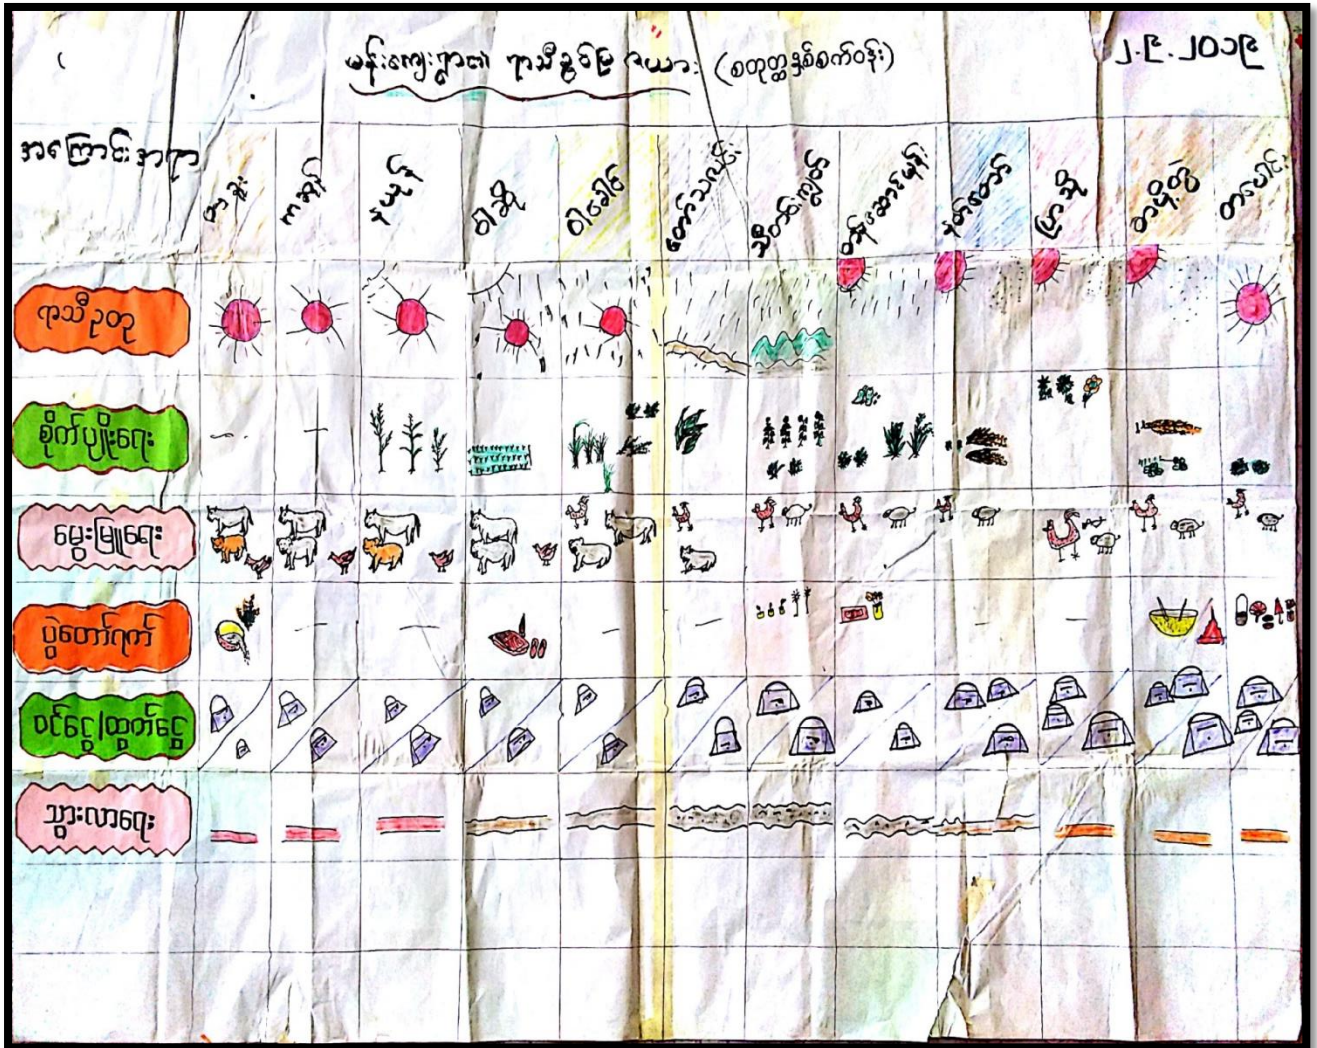 မန်းကျေးရွာ၏ ရာသီခွင်ပြ ဇယား (စတုတ္ထနှစ်စက်ဝန်း)
၂.၉.၂၀၁၉
အကြောင်းအရာ
တန်ခူး ကဆုန် နယုန် ဝါဆို ဝါခေါင် တော်သလင်း သီတင်းကျွတ် တန်ဆောင်မုန်း နတ်တော် ပြာသို တပို့တွဲ တပေါင်း
ရာသီဥတု
စိုက်ပျိုးရေး
မွေးမြူရေး
ပွဲတော်ရက်
ဝင်ငွေ/ထွက်ငွေ
သွားလာရေး